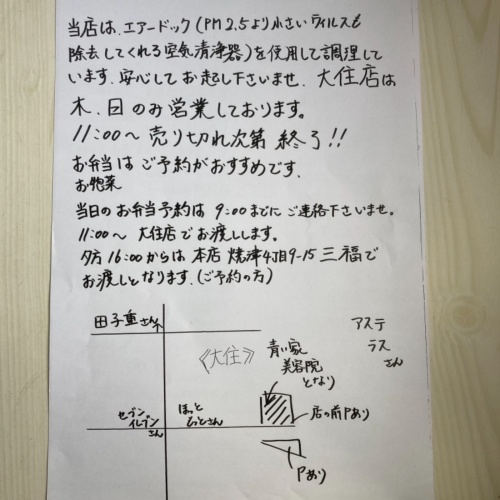 当店は、エアードック(PM2.5より小さいウィルスも
除去してくれる空気清浄器)を使用して調理して
います。安心してお起し下さいませ。大住店は
木、日のみ営業しております。
11:00〜売り切れ次第 終了!!
お弁当はご予約がおすすめです。
お惣菜
当日のお弁当予約は 9:00までにご連絡下さいませ。
11:00〜 大住店でお渡しします。
夕方16:00からは 本店 焼津4丁目9-15 三福で
お渡しとなります。(ご予約の方)
田子重さん
《大住》
青い家
美容院
となり
アステ
ラス
さん
セブン
イレブン
さん
ほっと
もっとさん
店の前Pあり
Pあり